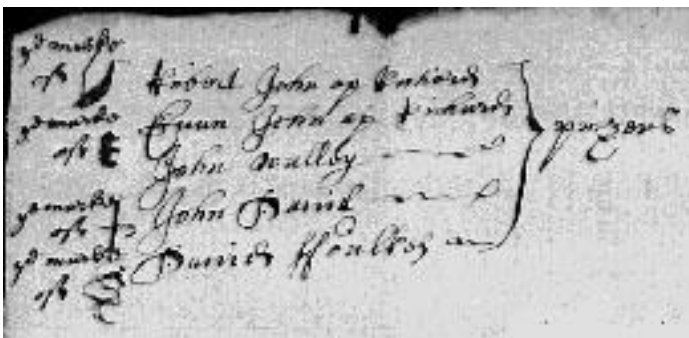 ye marke
of Robert John ap Richard
ye marke Evan John ap Richard
of E
John Walley
ye marke John David
of
ye marke David ffoulkes
of
prizers